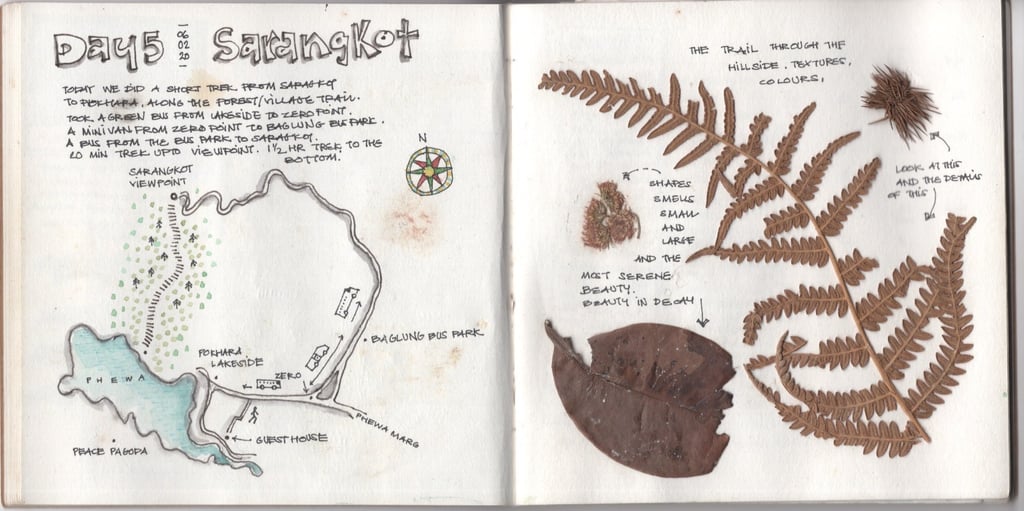 Day 5 06 02 20 Sarangkot
TODAY WE DID A SHORT TREK FROM SARANGKOT
TO POKHARA, ALONG THE FOREST/VILLAGE TRAIL.
TOOK A GREEN BUS FROM LAKESIDE TO ZERO POINT.
A MINIVAN FROM ZERO POINT TO BAGLUNG BUS PARK.
A BUS FROM THE BUS PARK TO SARANGKOT.
20 MIN TREK UPTO VIEWPOINT. 1 1/2 HR TREK TO THE
BOTTOM.
N
SARANGKOT
VIEWPOINT
BAGLUNG BUS PARK
POKHARA
LAKESIDE
ZERO
PHEWA
PHEWA MARG
GUEST HOUSE
PEACE PAGODA
THE TRAIL THROUGH THE
HILLSIDE. TEXTURES,
COLOURS,
LOOK AT THIS
AND THE DETAILS
OF THIS
SHAPES
SMELLS
SMALL
AND
LARGE
AND THE
MOST SERENE
BEAUTY.
BEAUTY IN DECAY